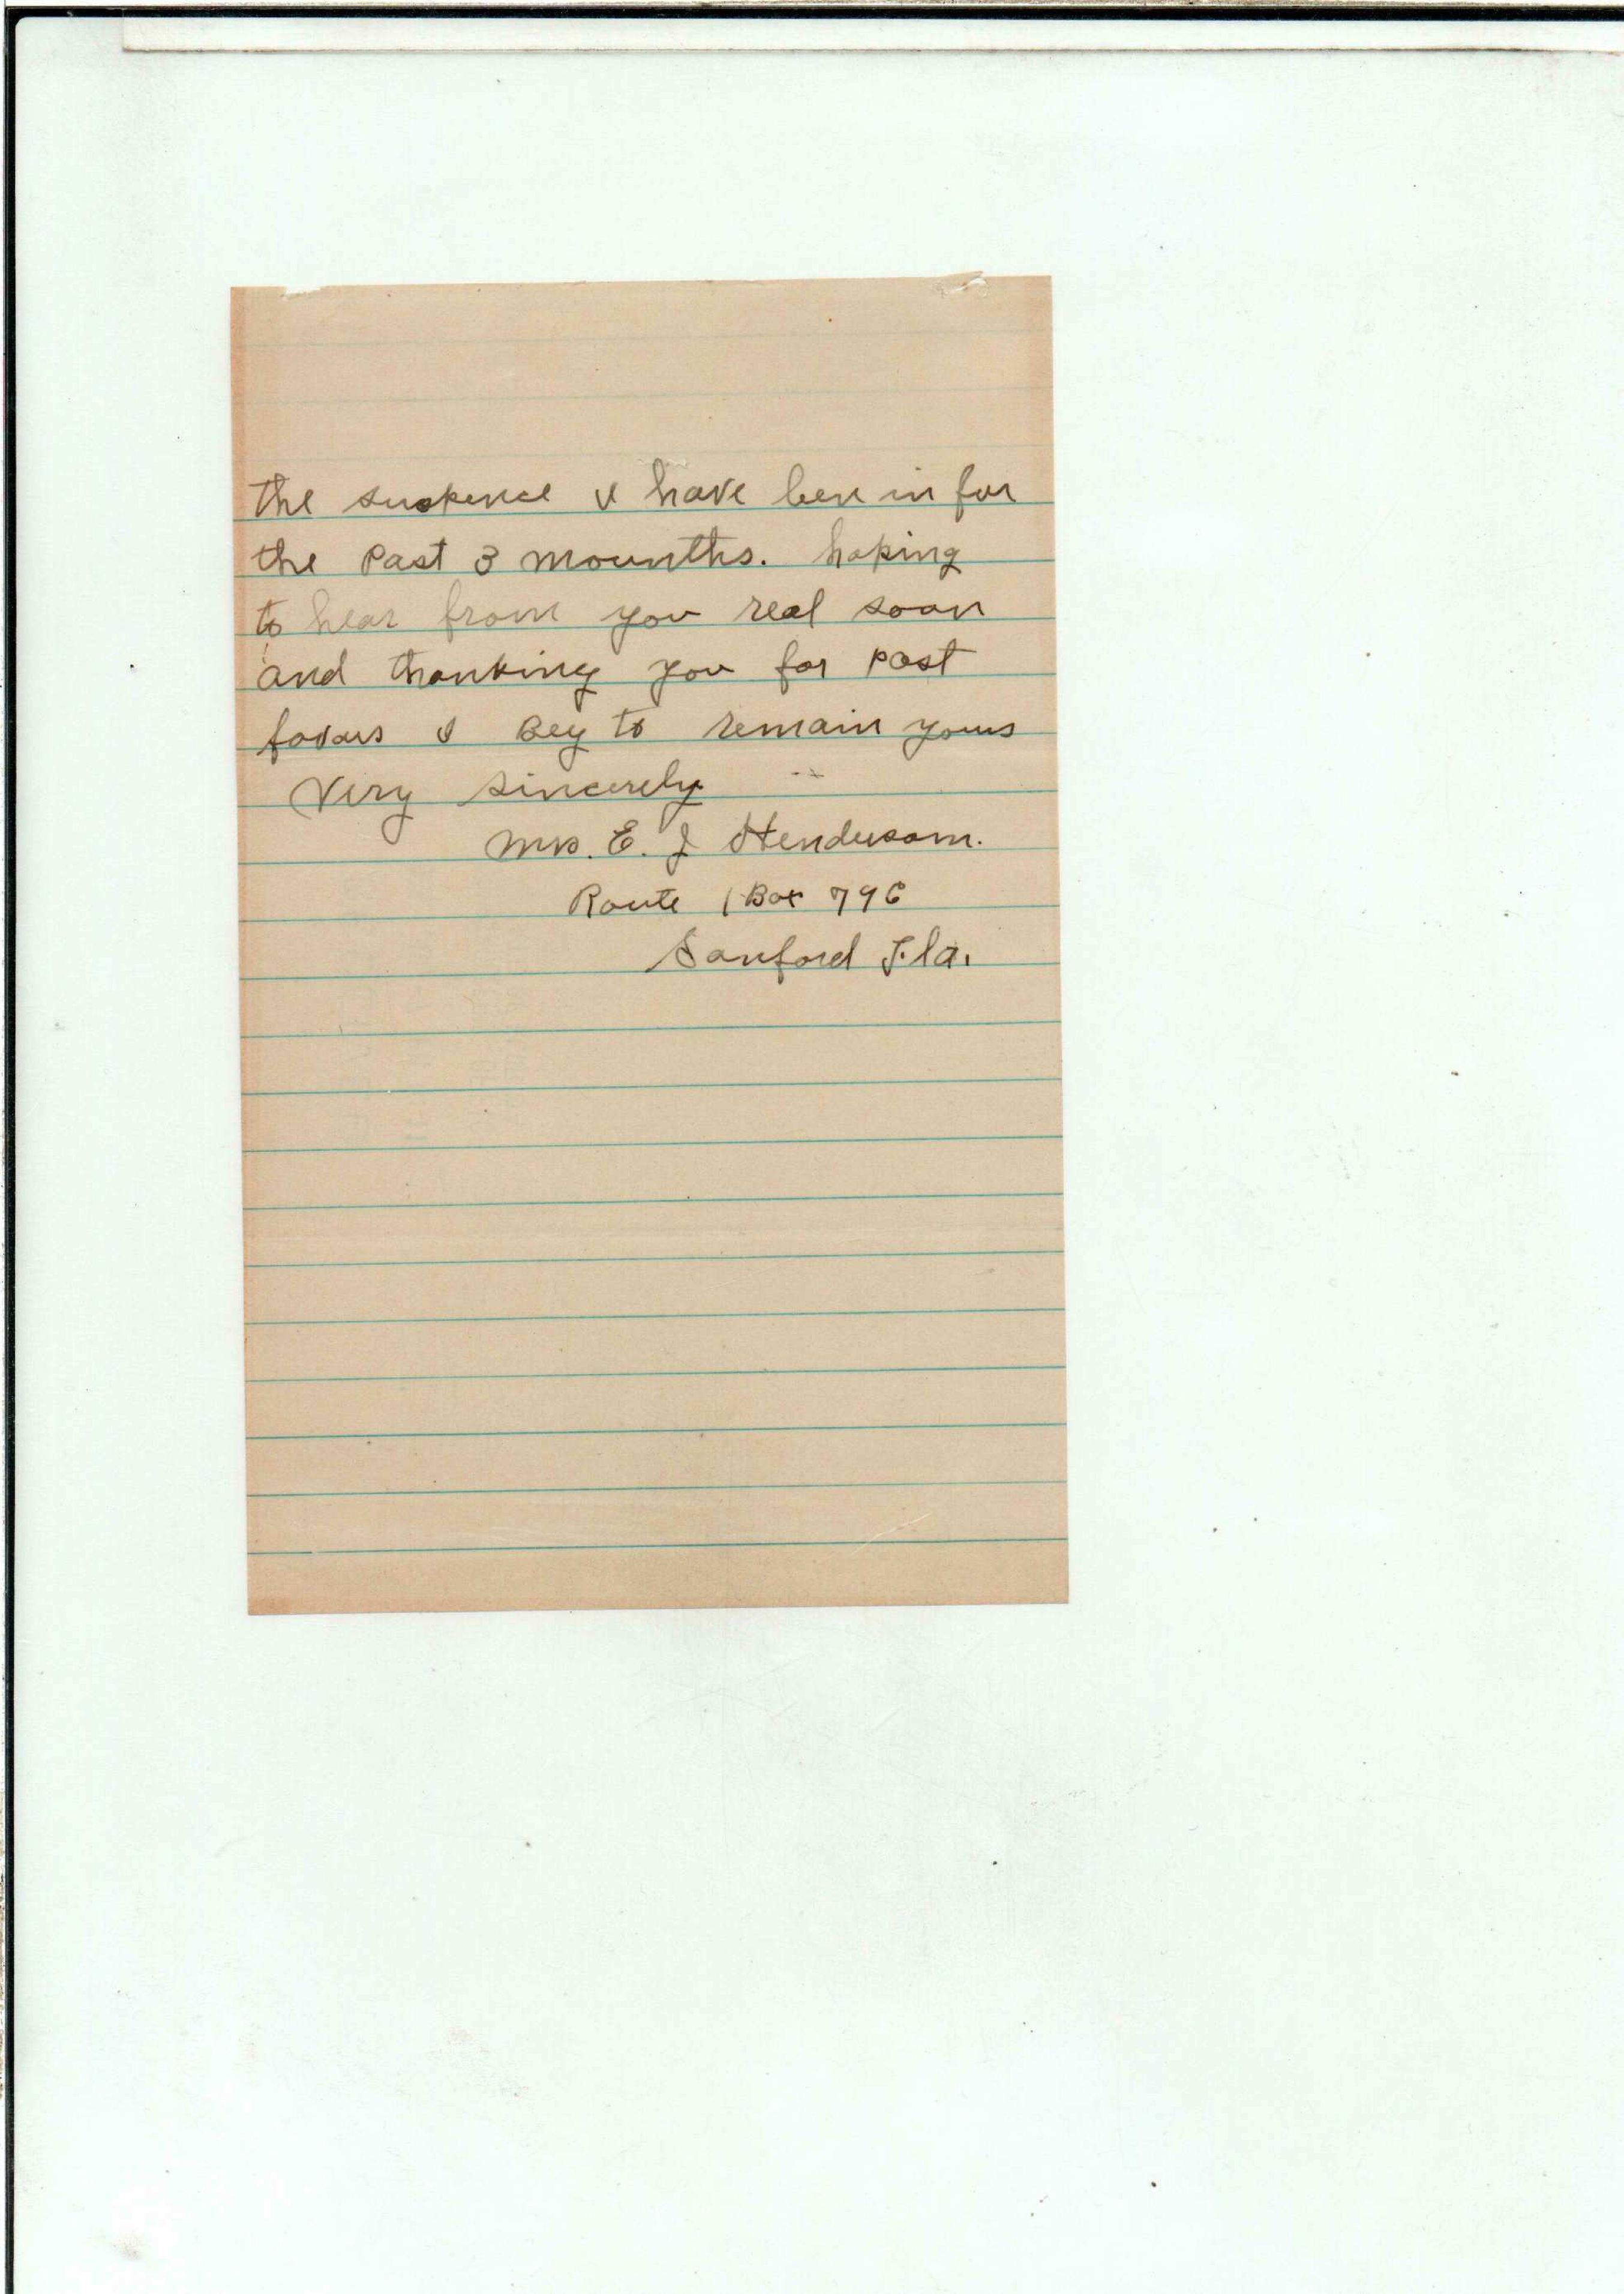 the suspence I have ben in for
the Past 3 mounths. hoping
to hear from you real soon
and thanking you for past
favors I Beg to remain yours
Very sincerely
Mrs. E. J Henderson.
Route 1 Box 796
Sanford Fla.